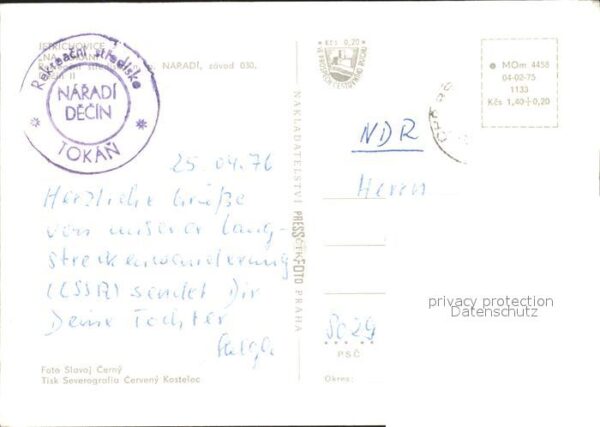 JETŘICHOVICE
NÁŘADÍ, závod 030.
Rekreační středisko
NÁŘADÍ
DĚČÍN
TOKÁŇ
Kčs 0,20
MOm 4458
04-02-75
1133
Kčs 1,40+0,20
25.04.76
Herzliche Grüße
von unserer Lang-
streckenwanderung
(CSSR) sendet Dir
Deine Tochter
Helga
NAKLADATELSTVÍ PRESSFOTO PRAHA
ČTK
NDR
Herrn
8029
PSČ
Okres:
Foto Slavoj Černý
Tisk Severografia Červený Kostelec
privacy protection
Datenschutz